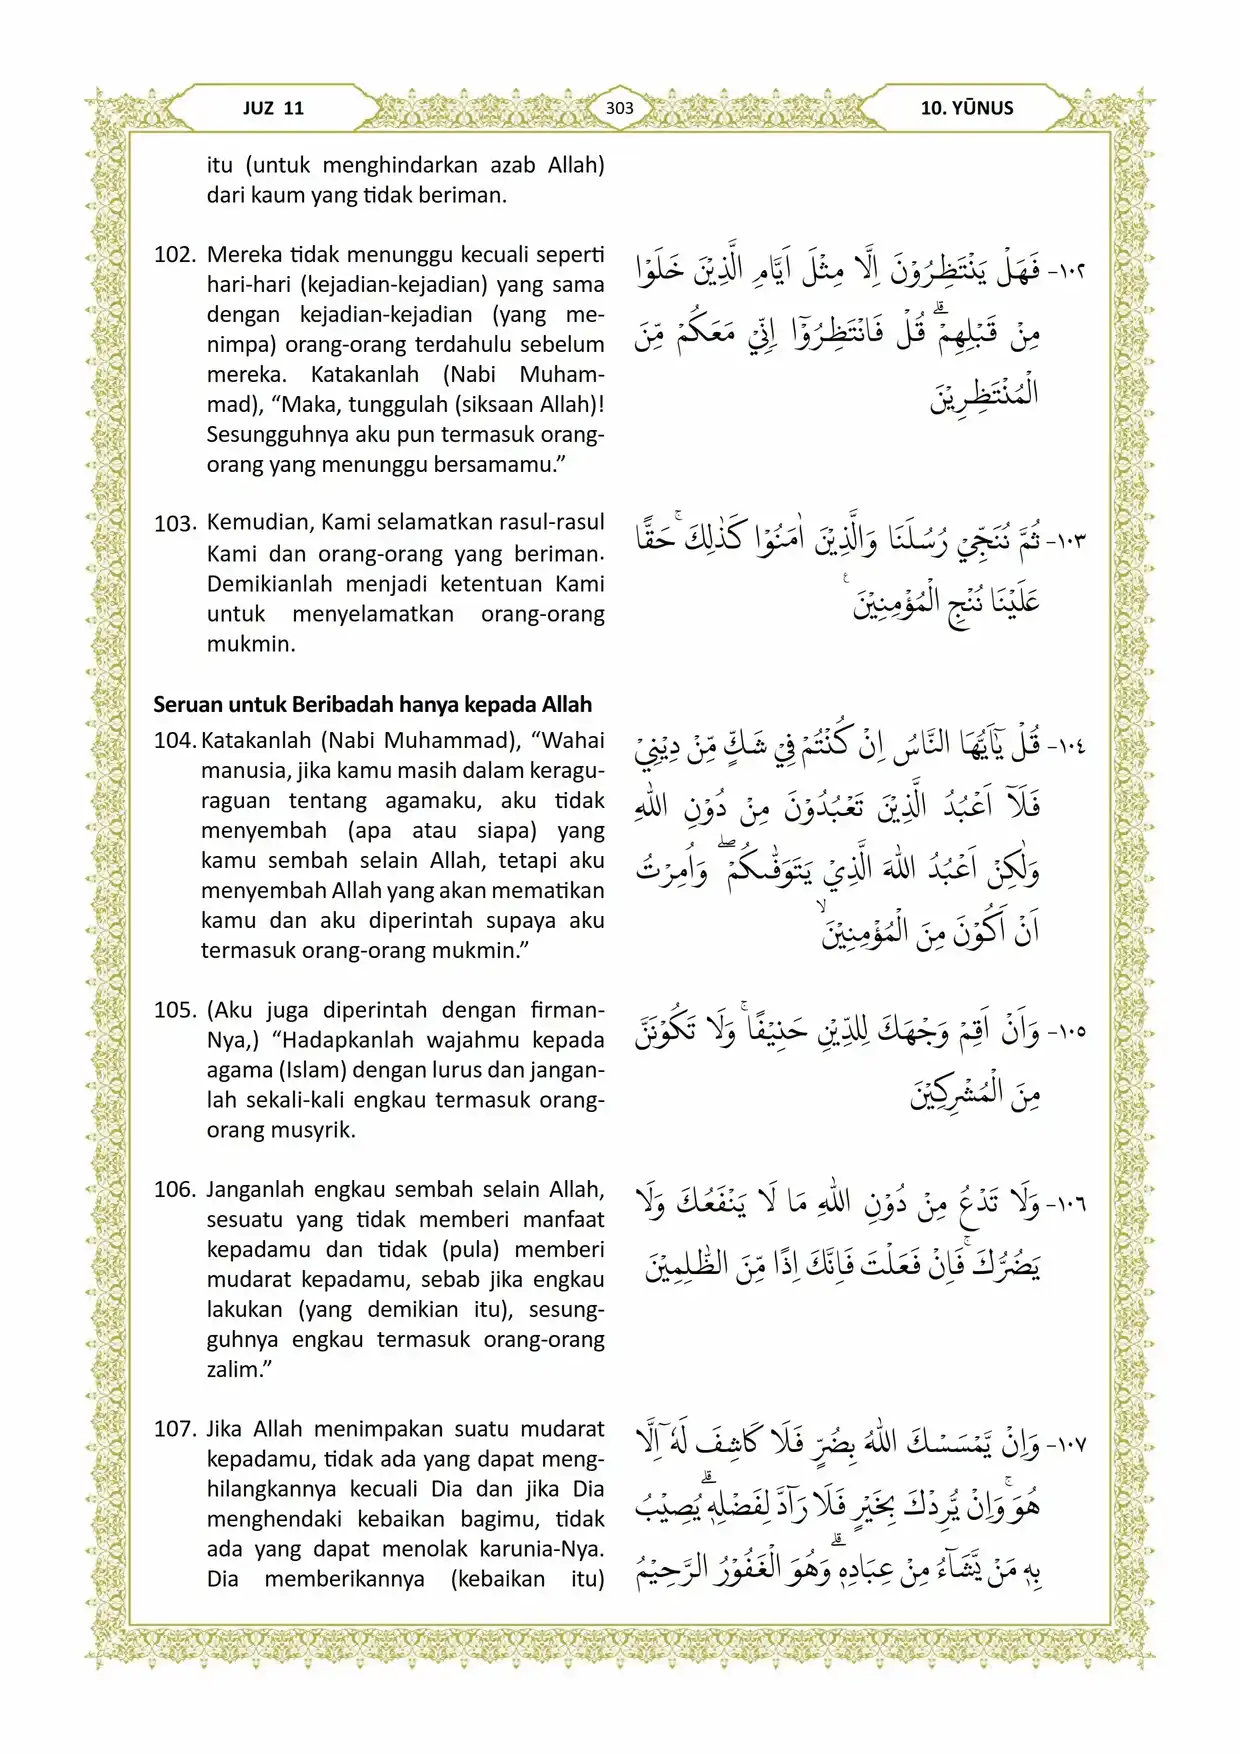 JUZ 11
303
10. YŪNUS
itu (untuk menghindarkan azab Allah)
dari kaum yang tidak beriman.
102. Mereka tidak menunggu kecuali seperti
hari-hari (kejadian-kejadian) yang sama
dengan kejadian-kejadian (yang me-
nimpa) orang-orang terdahulu sebelum
mereka. Katakanlah (Nabi Muham-
mad), “Maka, tunggulah (siksaan Allah)!
Sesungguhnya aku pun termasuk orang-
orang yang menunggu bersamamu.”
١٠٢- فَهَلْ يَنْتَظِرُوْنَ اِلَّا مِثْلَ اَيَّامِ الَّذِيْنَ خَلَوْا
مِنْ قَبْلِهِمْۗ قُلْ فَانْتَظِرُوْٓا اِنِّيْ مَعَكُمْ مِّنَ
الْمُنْتَظِرِيْنَ
103. Kemudian, Kami selamatkan rasul-rasul
Kami dan orang-orang yang beriman.
Demikianlah menjadi ketentuan Kami
untuk menyelamatkan orang-orang
mukmin.
١٠٣- ثُمَّ نُنَجِّيْ رُسُلَنَا وَالَّذِيْنَ اٰمَنُوْا كَذٰلِكَ ۚحَقًّا
عَلَيْنَا نُنْجِ الْمُؤْمِنِيْنَ ࣖ
Seruan untuk Beribadah hanya kepada Allah
104. Katakanlah (Nabi Muhammad), “Wahai
manusia, jika kamu masih dalam keragu-
raguan tentang agamaku, aku tidak
menyembah (apa atau siapa) yang
kamu sembah selain Allah, tetapi aku
menyembah Allah yang akan mematikan
kamu dan aku diperintah supaya aku
termasuk orang-orang mukmin.”
١٠٤- قُلْ يٰٓاَيُّهَا النَّاسُ اِنْ كُنْتُمْ فِيْ شَكٍّ مِّنْ دِيْنِيْ
فَلَآ اَعْبُدُ الَّذِيْنَ تَعْبُدُوْنَ مِنْ دُوْنِ اللّٰهِ
وَلٰكِنْ اَعْبُدُ اللّٰهَ الَّذِيْ يَتَوَفّٰىكُمْ ۖ وَاُمِرْتُ
اَنْ اَكُوْنَ مِنَ الْمُؤْمِنِيْنَۙ
105. (Aku juga diperintah dengan firman-
Nya,) “Hadapkanlah wajahmu kepada
agama (Islam) dengan lurus dan jangan-
lah sekali-kali engkau termasuk orang-
orang musyrik.
١٠٥- وَاَنْ اَقِمْ وَجْهَكَ لِلدِّيْنِ حَنِيْفًاۚ وَلَا تَكُوْنَنَّ
مِنَ الْمُشْرِكِيْنَ
106. Janganlah engkau sembah selain Allah,
sesuatu yang tidak memberi manfaat
kepadamu dan tidak (pula) memberi
mudarat kepadamu, sebab jika engkau
lakukan (yang demikian itu), sesung-
guhnya engkau termasuk orang-orang
zalim.”
١٠٦- وَلَا تَدْعُ مِنْ دُوْنِ اللّٰهِ مَا لَا يَنْفَعُكَ وَلَا
يَضُرُّكَ ۚفَاِنْ فَعَلْتَ فَاِنَّكَ اِذًا مِّنَ الظّٰلِمِيْنَ
107. Jika Allah menimpakan suatu mudarat
kepadamu, tidak ada yang dapat meng-
hilangkannya kecuali Dia dan jika Dia
menghendaki kebaikan bagimu, tidak
ada yang dapat menolak karunia-Nya.
Dia memberikannya (kebaikan itu)
١٠٧- وَاِنْ يَّمْسَسْكَ اللّٰهُ بِضُرٍّ فَلَا كَاشِفَ لَهٗٓ اِلَّا
هُوَ ۚوَاِنْ يُّرِدْكَ بِخَيْرٍ فَلَا رَاۤدَّ لِفَضْلِهٖۗ يُصِيْبُ
بِهٖ مَنْ يَّشَاۤءُ مِنْ عِبَادِهٖ ۗوَهُوَ الْغَفُوْرُ الرَّحِيْمُ